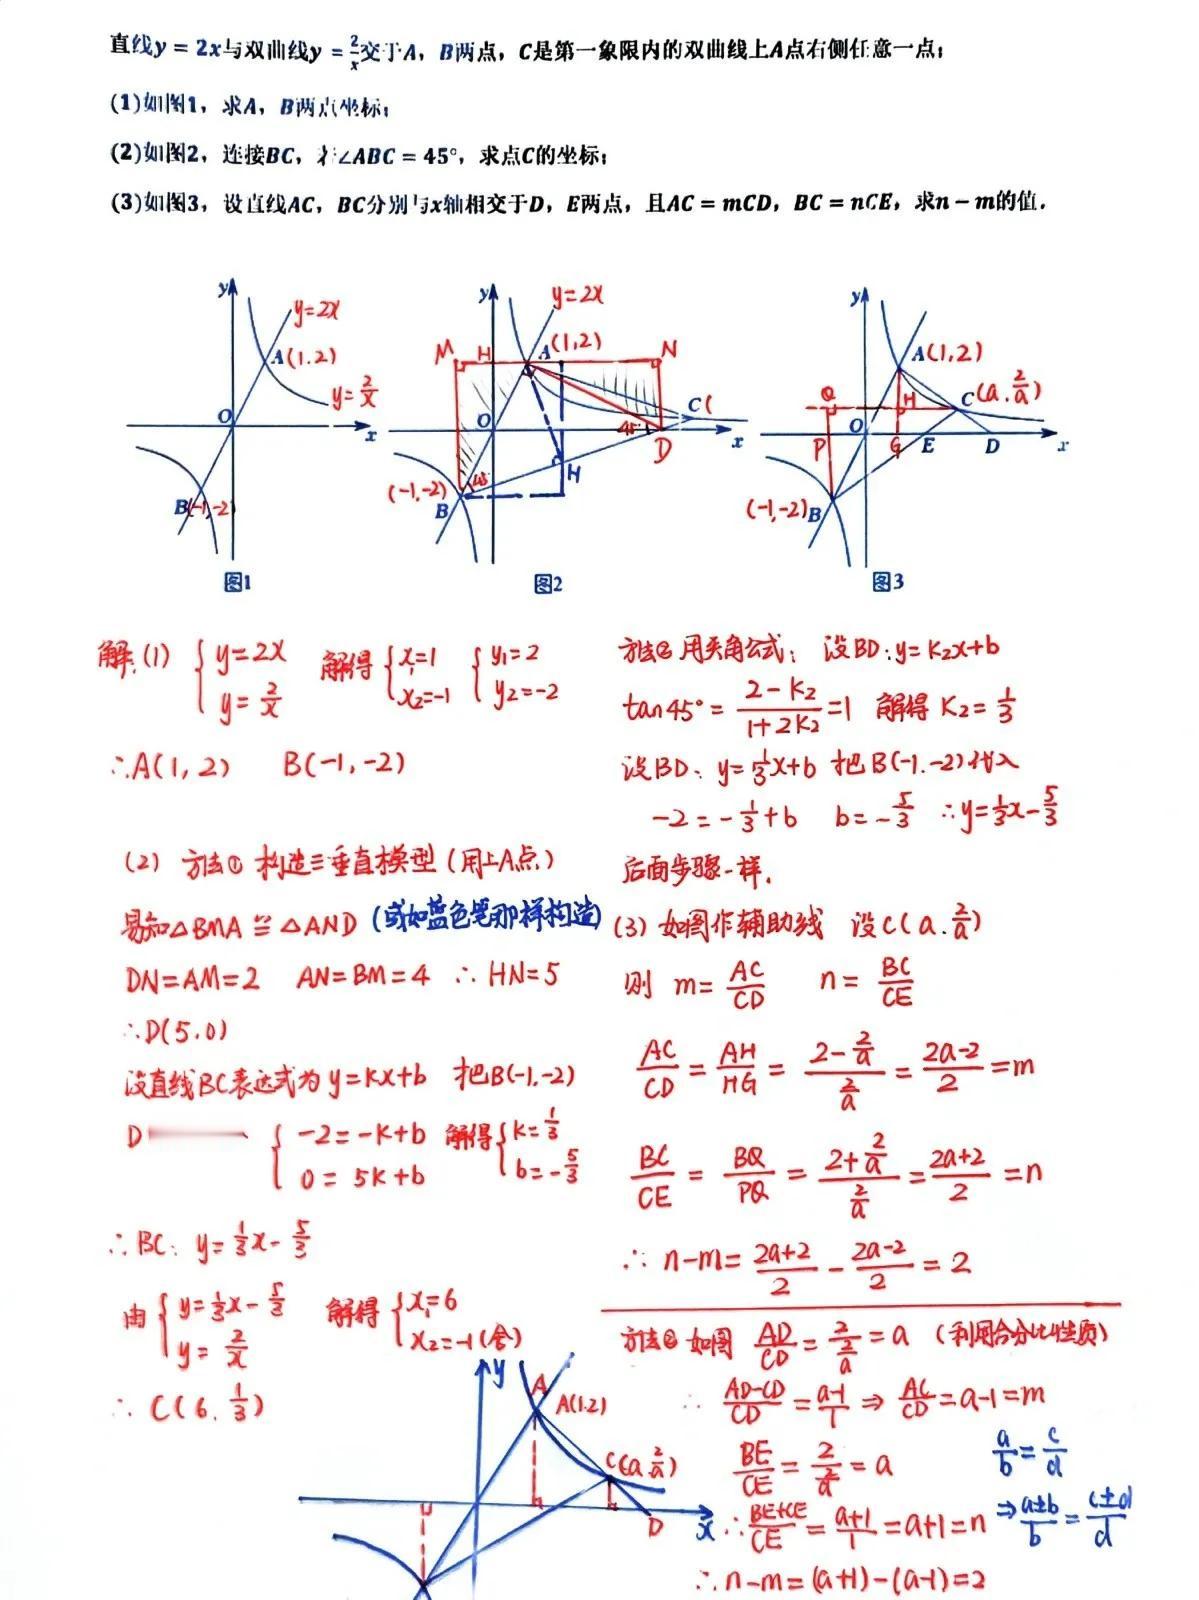 直线y = 2x与双曲线y = 2/x交于A，B两点，C是第一象限内的双曲线上A点右侧任意一点；
(1)如图1，求A，B两点坐标；
(2)如图2，连接BC，若∠ABC = 45°，求点C的坐标；
(3)如图3，设直线AC，BC分别与x轴相交于D，E两点，且AC = mCD，BC = nCE，求n − m的值．
y
y=2x
A(1.2)
y=2/x
O
x
B(-1,-2)
图1
y
y=2x
M H A(1,2) N
O
C(
45°
D
x
H
45
(-1,-2)
B
图2
y
A(1,2)
Q H C(a.2/a)
P O G E D x
(-1,-2)B
图3
解:(1) {y=2x y=2/x 解得{x₁=1 x₂=-1 {y₁=2 y₂=-2
∴A(1,2) B(-1,-2)
(2) 方法① 构造三垂直模型(用上A点)
易知△BMA≌△AND (或如蓝色笔那样构造)
DN=AM=2 AN=BM=4 ∴HN=5
∴D(5.0)
设直线BC表达式为y=kx+b 把B(-1,-2)
D {-2=-k+b 0=5k+b 解得{k=1/3 b=-5/3
∴BC: y=1/3x-5/3
由{y=1/3x-5/3 y=2/x 解得{x₁=6 x₂=-1(舍)
∴C(6.1/3)
y
A
A(1.2)
C(a.2/a)
D
x
方法② 用夹角公式: 设BD:y=K₂x+b
tan45°=(2-K₂)/(1+2K₂)=1 解得K₂=1/3
设BD: y=1/3x+b 把B(-1.-2)代入
-2=-1/3+b b=-5/3 ∴y=1/3x-5/3
后面步骤一样.
(3) 如图作辅助线 设C(a.2/a)
则 m=AC/CD n=BC/CE
AC/CD=AH/HG=(2-2/a)/(2/a)=(2a-2)/2=m
BC/CE=BQ/PQ=(2+2/a)/(2/a)=(2a+2)/2=n
∴n-m=(2a+2)/2-(2a-2)/2=2
方法② 如图 AD/CD=2/(2/a)=a (利用合分比性质)
∴(AD-CD)/CD=(a-1)/1⇒AC/CD=a-1=m
BE/CE=2/(2/a)=a
a/b=c/d
∴(BE+CE)/CE=(a+1)/1=a+1=n
⇒(a±b)/b=(c±d)/d
∴n-m=(a+1)-(a-1)=2